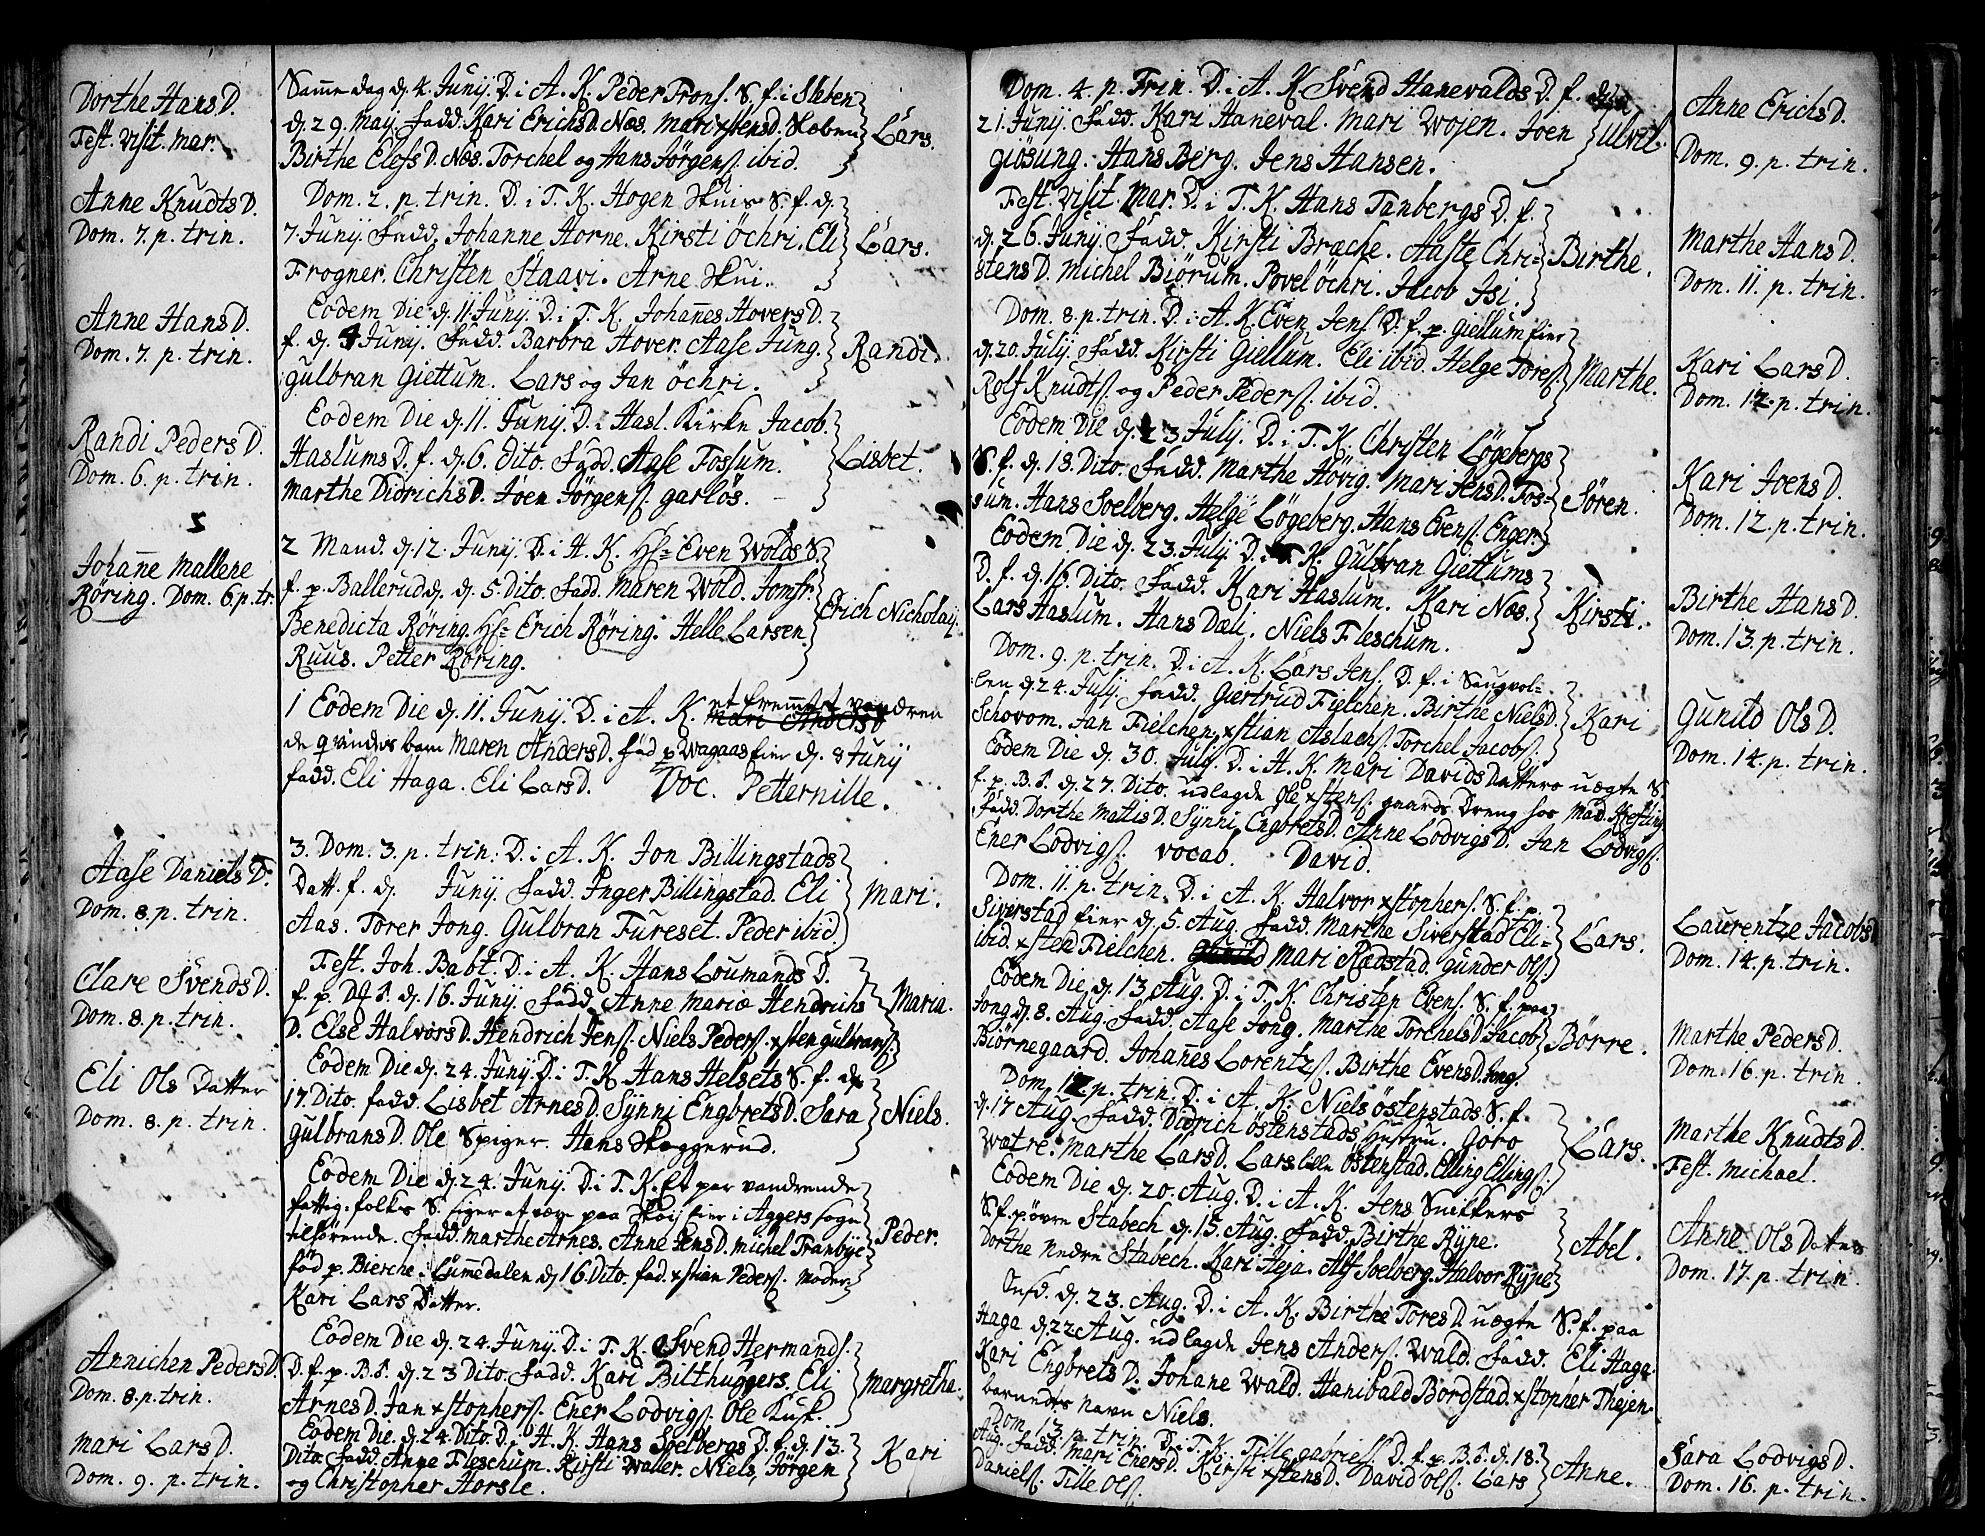 Dorthe Hans D.
Fest. Visit. Mar.
Anne Knudts D.
Dom. 7. p. trin.
Anne Hans D.
Dom. 7. p. trin.
Randi Peders D.
Dom. 6. p. trin.
Johan̄e Mallene
Röring. Dom. 6. p. tr.
Aase Daniels D.
Dom. 8. p. trin.
Clare Svends D.
Dom. 8. p. trin.
Eli Ols Datter
Dom. 8. p. trin.
Annichen Peders D.
Dom. 8. p. trin.
Mari Lars D.
Dom. 9. p. trin.
Sam̄e dag d. 4. Junij. D. i A. K. Peder Trons. S. f. i Sleben
d. 29. May. Fadd. Kari Erichs D. Næs. Mari xstens D. Sleben
Birthe Elefs D. Næs. Torchel og Hans Jörgens. ibid.
Lars.
Dom. 2. p. trin. D. i T. K. Hogen Skuis S. f. d.
7 Junij. Fadd. Johanne Horne. Kirsti Öchri. Eli
Frogner. Christen Staavi. Arne Skui.
Lars.
Eodem Die d. 11. Junij. D. i T. K. Johan̄es Hovers D.
f. d. 4 Junij. Fadd. Barbra Hover. Aase Jung.
Gulbran Giettum. Lars og Jan Öchri.
Randi.
Eodem Die d. 11. Junij. D. i Hasl. Kirke Jacob
Haslums D. f. d. 6. Dito. Fadd. Aase Fossum.
Marthe Didrichs D. Joen Jörgens. Garlös.
Lisbet.
2 Mand. d. 12. Junij. D. i H. K. Hs= Even Wolds S.
f. p. Ballerud d. 5. Dito. Fadd. Maren Wold. Jomfr.
Benedicta Röring. Hs= Erich Röring. Helle Larsen.
Ruus. Petter Röring.
Erich Nicholay.
1 Eodem Die d. 11. Junij. D. i A. K. et frem̄et vandren
de qvindes barn Maren Anders D. föd p. Wagaas fier d. 8 Junij
fadd. Eli Haga. Eli Lars D. Voc. Petternille.
3. Dom. 3. p. trin. D. i A. K. Jon Billingstads
Datt. f. d. Junij. Fadd. Inger Billingstad. Eli
Aas. Torer Jong. Gulbran Fureset. Peder ibid.
Mari.
Fest. Joh. Babt. D. i A. K. Hans Loumands D.
f. p. B. S. d. 16. Junij. Fadd. Anne Mariæ Hendrichs
D. Else Halvors D. Hendrich Jens. Niels Peders. xsten Gulbrans.
Maria.
Eodem Die d. 24. Junij. D. i T. K. Hans Helsets S. f. d.
17. Dito. fadd. Lisbet Arnes D. Synni Engbrets D. Sara
Gulbrans D. Ole Spiger. Hans Skoggerud.
Niels.
Eodem Die d. 24. Junij. D. i T. K. Et par vandrende
fattig. folks S. siger at være paa Skøij fier i Aggers sogn
tilhörende. Fadd. Marthe Arnes. Anne Jens D. Michel Tranbye
föd p. Bierche. Lum̄edalen d. 16. Dito. fad. xstian Peders. Moder
Kari Lars Datter.
Peder.
Eodem Die d. 24. Junij. D. i T. K. Svend Hermands.
D. f. p. B. S. d. 23 Dito. Fadd. Kari Bilthuggers. Eli
Arnes D. Jan xstophers. Ener Lodvigs. Ole Kusk.
Margretha.
Eodem Die d. 24. Dito. D. i H. K. Hans Solbergs D. f. d. 13.
Dito. Fadd. Anne Fleschum. Kirsti Waller. Niels, Jörgen
og Christopher Horsle.
Kari
Dom. 4. p. Trin. D. i A. K. Svend Hanevalds D. f.
21. Junij. Fadd. Kari Haneval. Mari Wojen. Joen
Giösung. Hans Berg. Jens Hansen.
Ulvil.
Fest. Visit. Mar. D. i T. K. Hans Tanbergs D. f.
d. 26. Junij. Fadd. Kirsti Brache. Aaste Chri=
stens D. Michel Biörum. Povel Öchri. Jacob Isi.
Birthe.
Dom. 8. p. trin. D. i A. K. Even Jens. D. f. p. Giellum fier
d. 20. Julij. Fadd. Kirsti Giellum. Eli ibid. Helge Tores.
Rolf Knudts. og Peder Peders. ibid.
Marthe.
Eodem Die d. 23 Julij. D. i T. K. Christen Lögebergs
S. f. d. 13. Dito. Fadd. Marthe Hövig. Mari Jens D. Fos=
sum. Hans Soelberg. Helge Lögeberg. Hans Evens. Enger.
Sören.
Eodem Die d. 23. Julij. D. i T. K. Gulbran Giettums
D. f. d. 16. Dito. Fadd. Kari Haslum. Kari Næs.
Lars Haslum. Hans Dæli. Niels Fleschum.
Kirsti.
Dom. 9. p. trin. D. i A. K. Lars Jens. D. f. i Saugvol=
len d. 24. Julij. Fadd. Giertrud Fielchen. Birthe Niels D.
Schovom. Jan Fielchen. xstian Aslachs. Torchel Jacobs.
Kari
Eodem Die d. 30. Julij. D. i H. K. Mari Davids Datters uægte S.
f. p. B. S. d. 27. Dito. udlagde Ole xstens. gaards Dreng hos Mad. Krefting
Fadd. Dorthe Mattis D. Synni Engbrets D. Anne Lodvigs D. Jan Lodvigs.
Ener Lodvigs. vocab. David.
Dom. 11. p. trin. D. i A. K. Halvor xstophers. S. f. p.
Siverstad fier d. 5. Aug. Fadd. Marthe Siverstad Eli=
ibid. xsten Fielchen. Mari Rødstad. Gunder Ols.
Lars.
Eodem Die d. 13. Aug. D. i T. K. Christen Evens. S. f. paa
Jong d. 8. Aug. Fadd. Aase Jong. Marthe Torchels D. Jacob
Biörnegaard. Johan̄es Lorentzs. Birthe Evens D. Jong.
Börre.
Dom. 12. p. trin. D. i A. K. Niels Östenstads S. f.
d. 17 Aug. Fadd. Didrich Östenstads Hustru. Goro
Watre. Marthe Lars D. Lars Lille Östenstad. Elling Ellings.
Lars.
Eodem Die d. 20. Aug. D. i A. K. Jens Snekkers
S. f. p. övre Stabech d. 15. Aug. Fadd. Birthe Rype.
Dorthe Nedre Stabech. Kari Heja. Alf Solberg. Halvor Rype
Abel.
Onsd. d. 23. Aug. D. i A. K. Birthe Tores D. uægte S. f. paa
Haga d. 22 Aug. udlagde Jens Anders. Wald. Fadd. Eli Haga.
Kari Engbrets D. Johane Wald. Hanibald Bordstad. xstopher Thejen.
barnedes navn Niels.
Dom. 13. p. trin. D. i T. K. Tille Gabriels. D. f. p. B. S. d. 18.
Aug. Fadd. Mari Eners D. Kirsti xstens D. David Ols. Lars
Daniels. Tille Ols.
Anne.
Anne Erichs D.
Dom. 9. p. trin.
Marthe Hans D.
Dom. 11. p. trin.
Kari Lars D.
Dom. 12. p. trin.
Kari Joens D.
Dom. 12. p. trin.
Birthe Hans D.
Dom. 13. p. trin.
Gunild Ols D.
Dom. 14. p. trin.
Laurentze Jacobs D
Dom. 14. p. trin.
Marthe Peders D.
Dom. 16. p. trin.
Marthe Knudts D.
Fest. Michael.
Anne Ols Datter
Dom. 17. p. trin.
Sara Lodvigs D.
Dom. 16. p. trin.